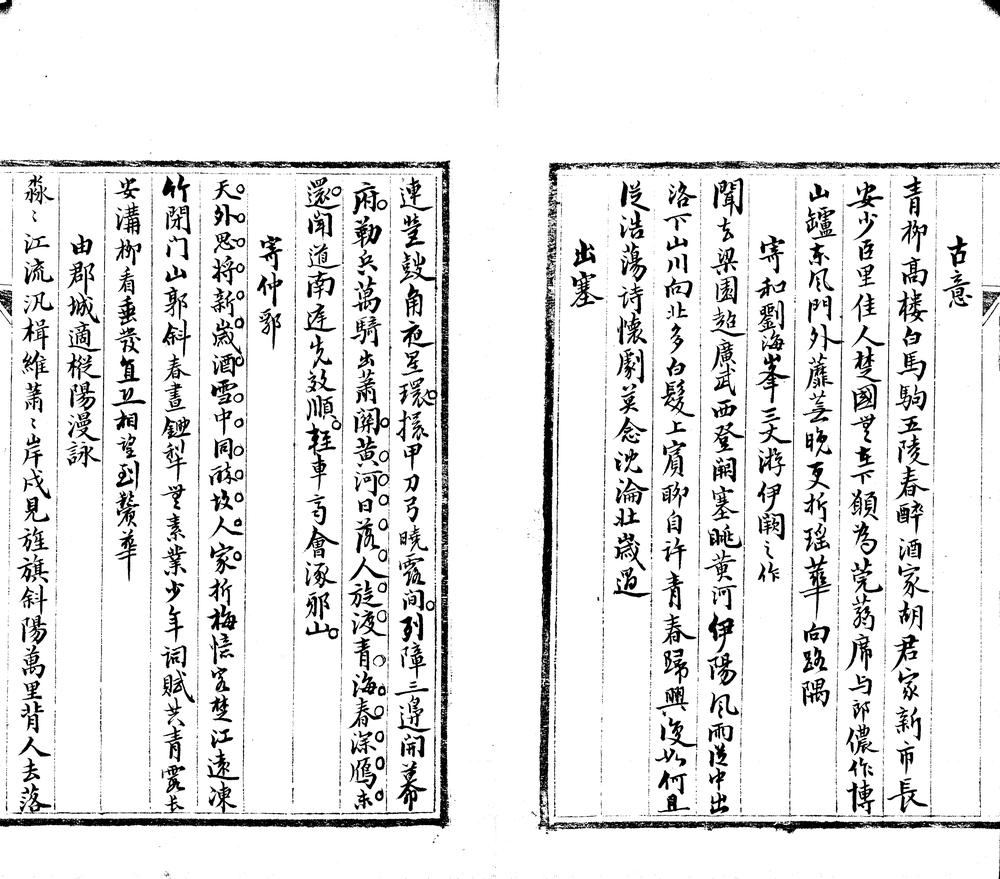 古意
青柳高楼白馬駒五陵春醉酒家胡君家新市長
安少臣里佳人楚國無在下願為莞蒻席与郎儂作博
山鑪東風門外蘼蕪晚更折瑶華向路隅
寄和劉海峯三丈游伊闕之作
聞去梁園超廣武西登闕塞眺黄河伊陽風雨從中出
洛下山川向北多白髮上賓聊自許青春歸興復如何且
從浩蕩詩懷劇莫念沈淪壯歲過
出塞
連營鼓角夜星環擐甲刀弓曉露间列障三邊開幕
府勒兵萬騎出蕭關黄河日落人旋渡青海春深鴈未
還闻道南庭先效順輕車高會涿邪山
寄仲郛
天外思将新歲酒雪中同醉故人家折梅憶寄楚江遠凍
竹閉门山郭斜春晝鋤犁無素業少年词賦共青霞长
安溝柳看垂發直上相望到鬢華
由郡城適樅陽漫詠
淼〻江流汎楫維萧〻岸戍見旌旗斜陽萬里背人去落